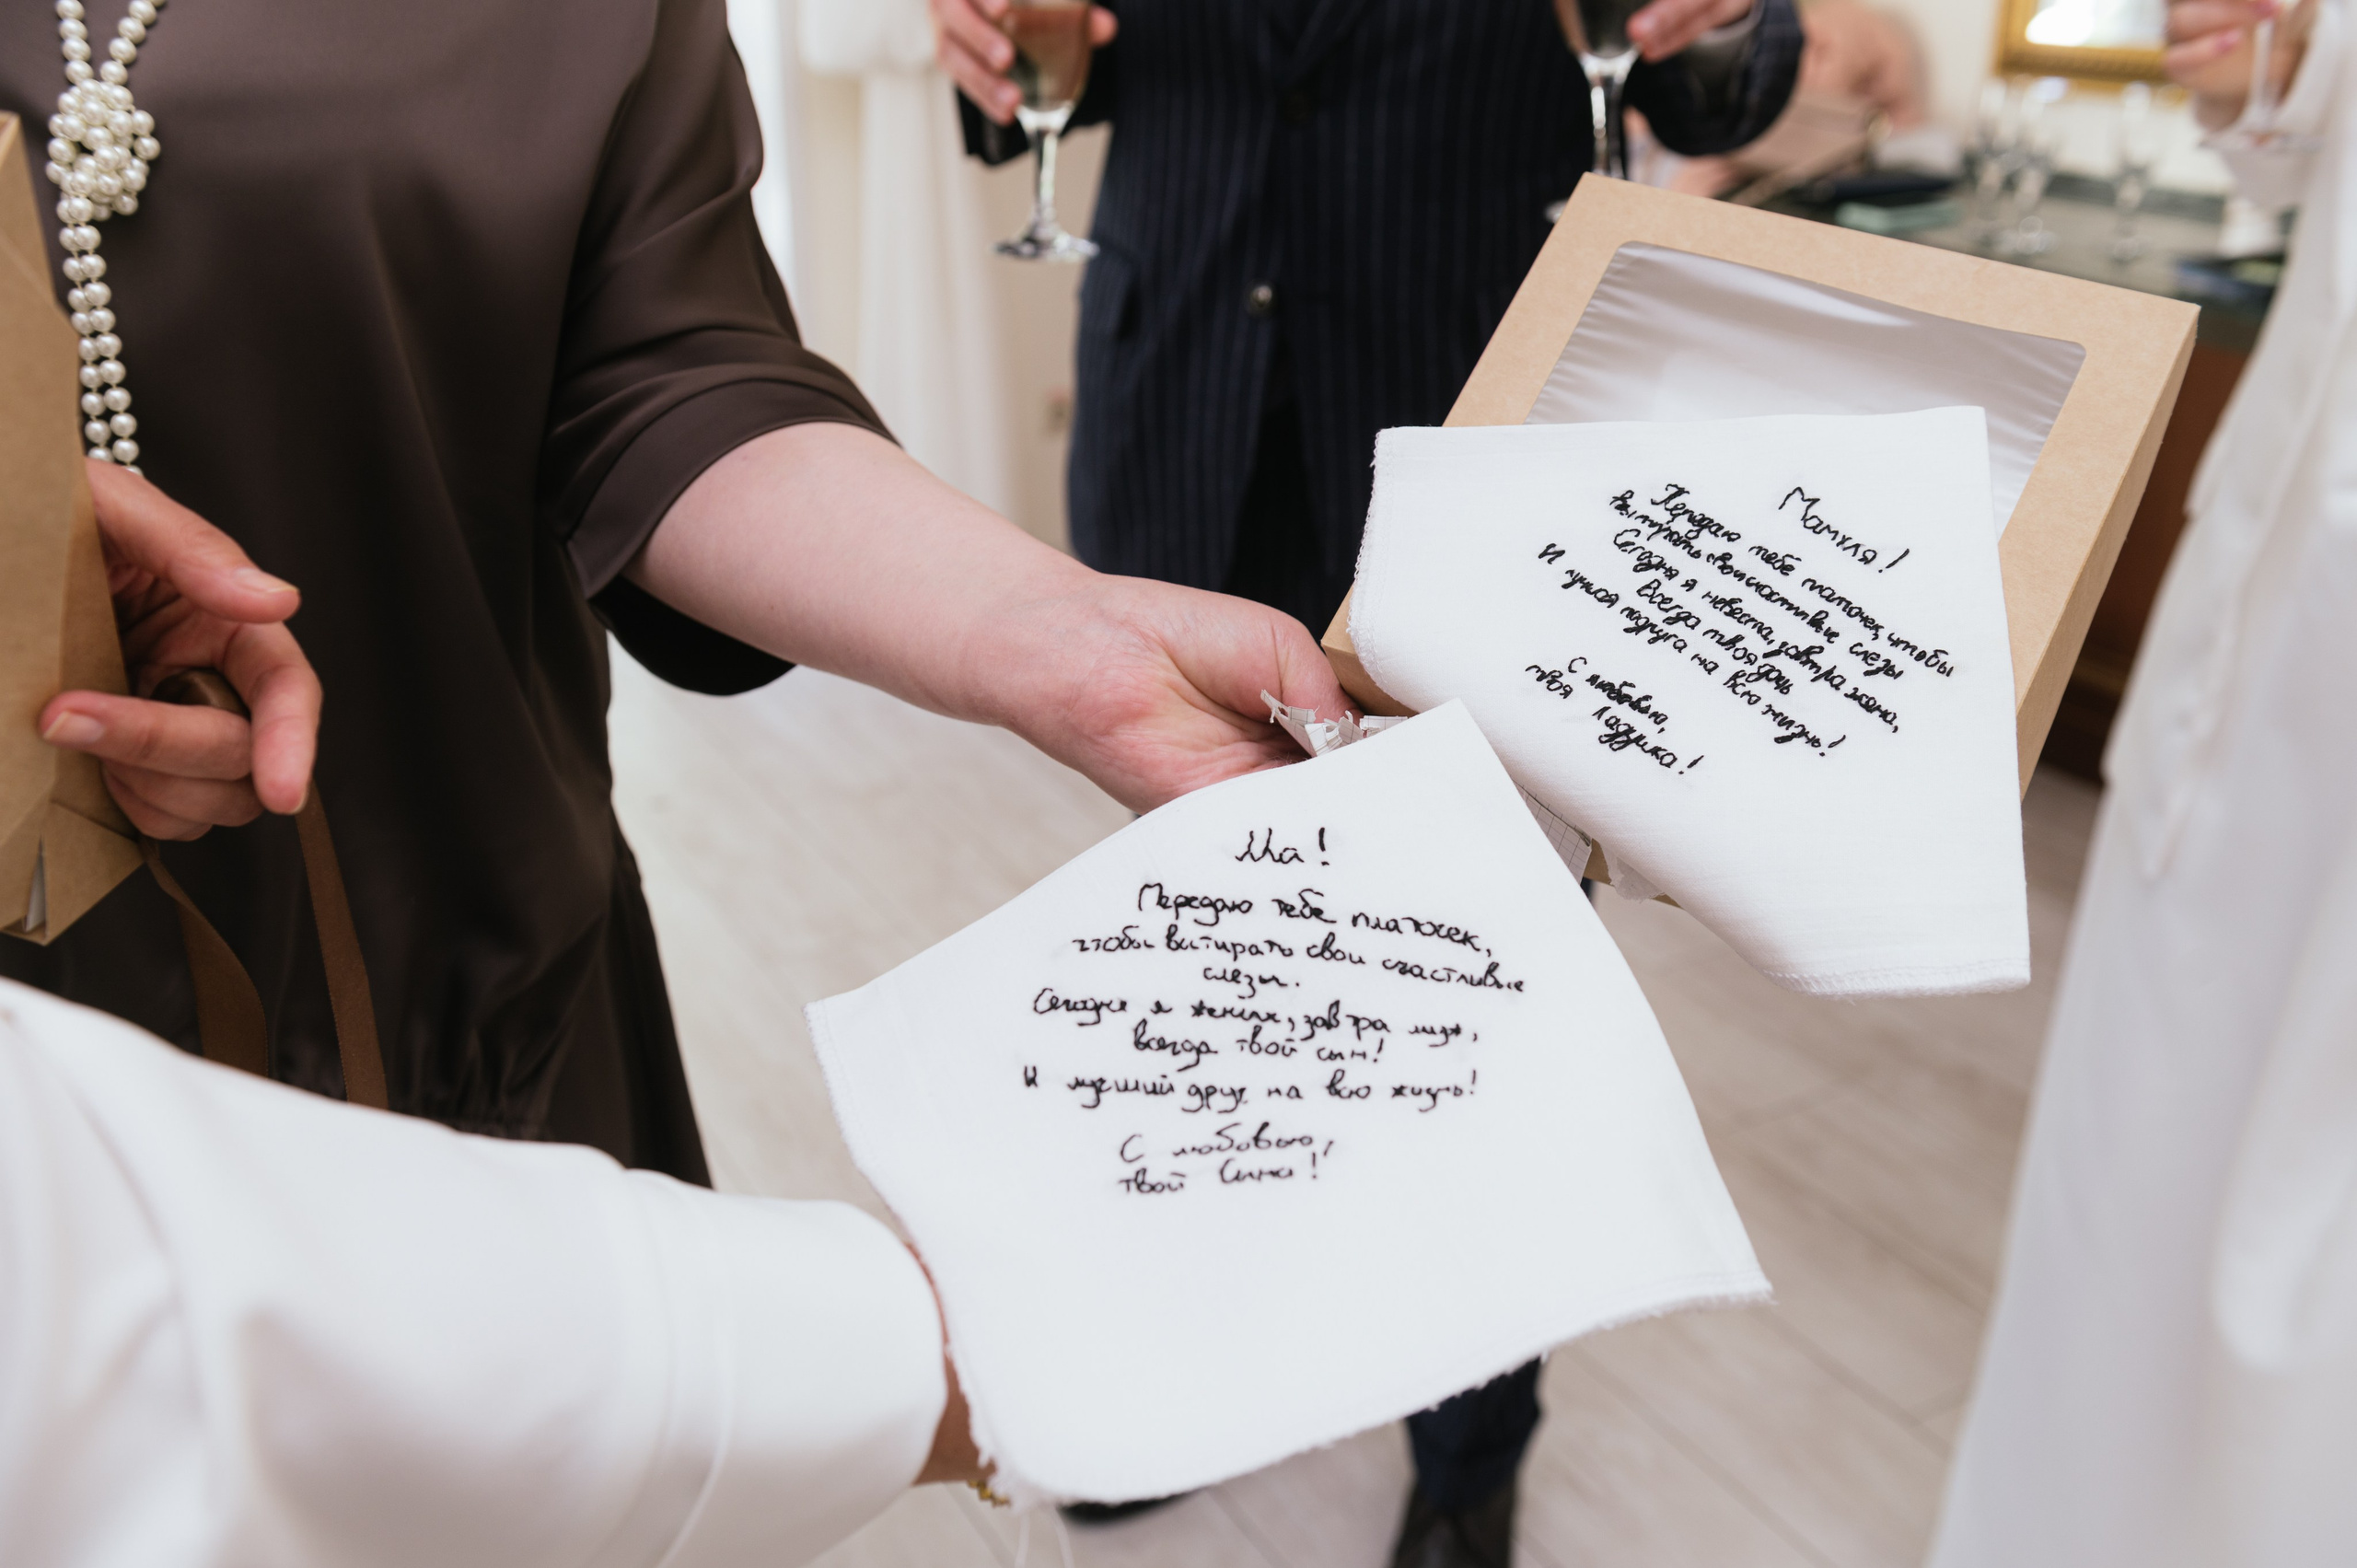 Ма!
Передаю тебе платочек,
чтобы вытирать свои счастливые
слезы.
Сегодня я жених, завтра муж,
всегда твой сын!
И лучший друг на всю жизнь!
С любовью,
твой Сима!
Мамуля!
Передаю тебе платочек, чтобы
вытирать свои счастливые слезы
Сегодня я невеста, завтра жена,
Всегда твоя дочь
И лучшая подруга на всю жизнь!
С любовью,
твоя Ладушка!